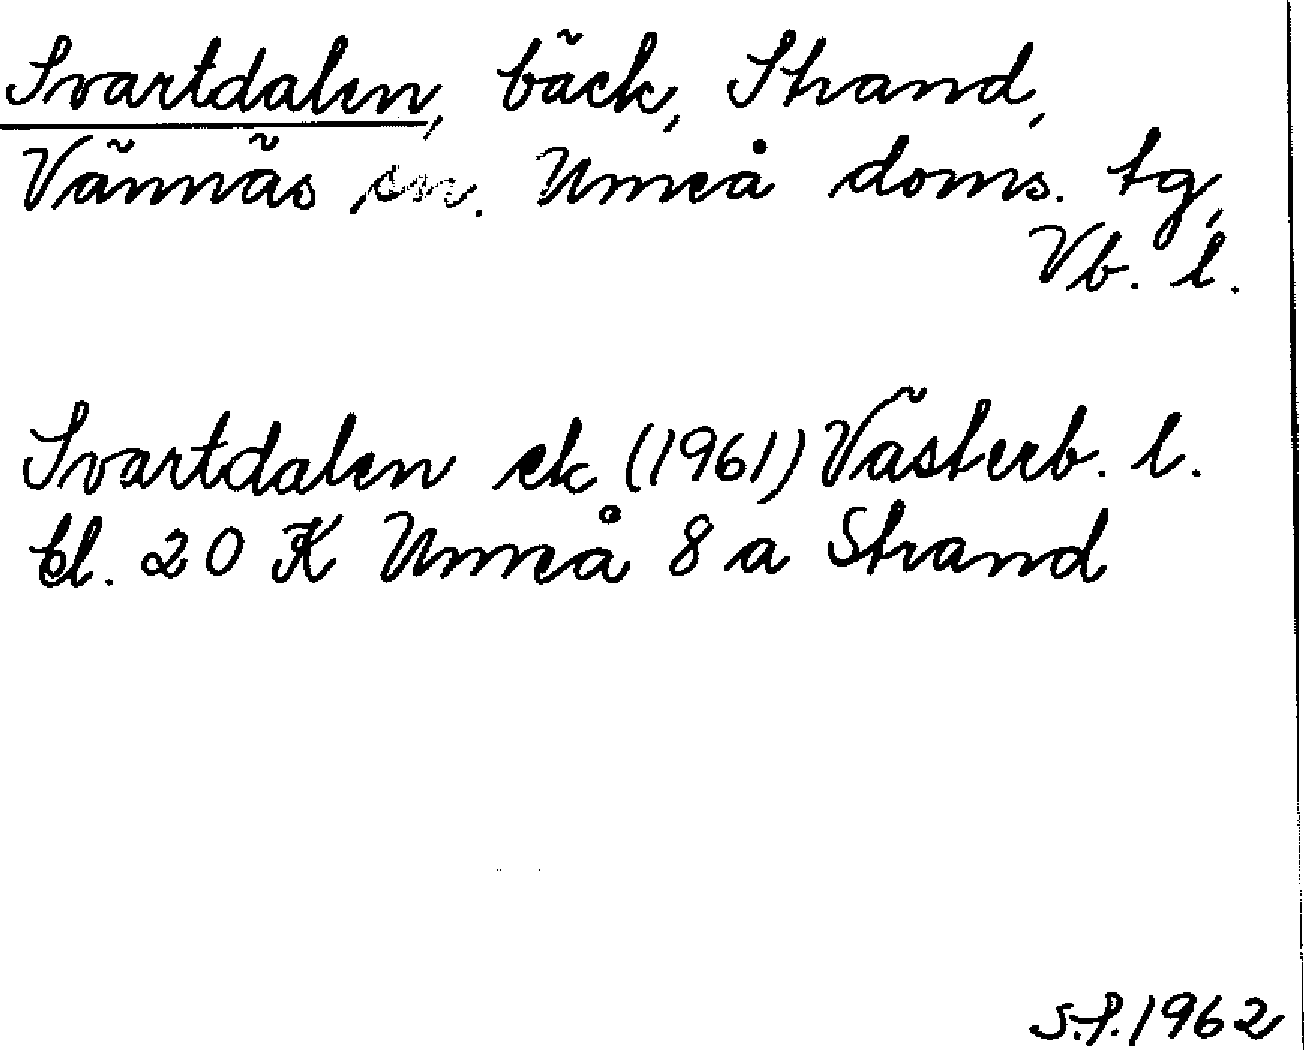 Svartdalen, bäck, Strand,
Vännäs sn. Umeå doms. tg,
Vb. l.
Svartdalen ek (1961) Västerb. l.
bl. 20 K Umeå 8 a Strand
S.P. 1962